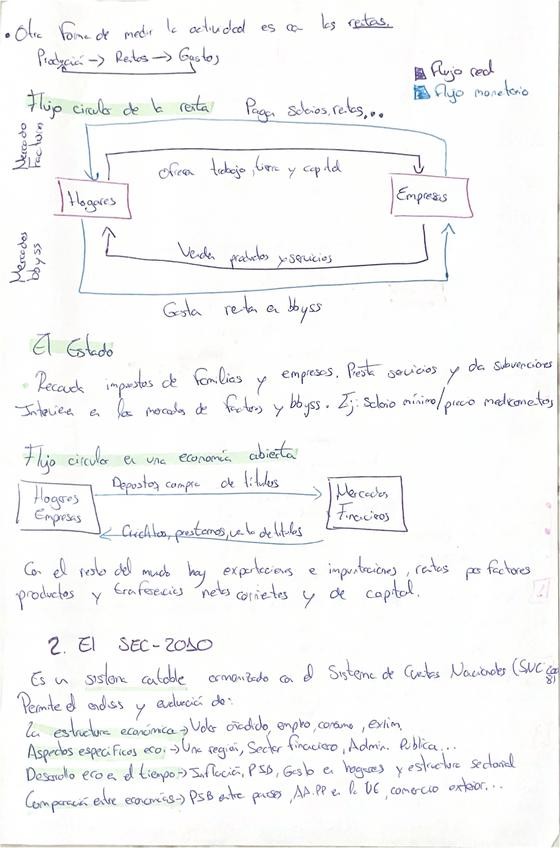 • Otra forma de medir la actividad es con las rentas.
Producción -> Rentas -> Gastos
Flujo real
Flujo monetario
Flujo circular de la renta
Pagan salarios, rentas,...
Mercado factores
Ofrecen trabajo, tierra y capital
Hogares
Empresas
Mercados bbyss
Venden productos y servicios
Gasta renta en bbyss
El Estado
• Recauda impuestos de familias y empresas. Presta servicios y da subvenciones
Interviene en los mercados de factores y bbyss. Ej: Salario mínimo/precio medicamentos
Flujo circular en una economía abierta
Depositos, compra de títulos
Hogares
Empresas
Mercados
Financieros
Creditos, prestamos, venta de titulos
Con el resto del mundo hay exportaciones e importaciones, rentas por factores
productos y transferencias netas corrientes y de capital.
2. El SEC-2010
Es un sistema contable armonizado con el Sistema de Cuentas Nacionales (SNC 2008)
Permite el analisis y evaluación de:
La estructura económica -> Valor añadido, empleo, consumo, ext/im.
Aspectos especificos eco. -> Una región, Sector financiero, Admin. Publica...
Desarrollo eco en el tiempo -> Inflación, PIB, Gasto en hogares y estructura sectorial
Comparación entre economías -> PIB entre paises, AA.PP en la UE, comercio exterior...